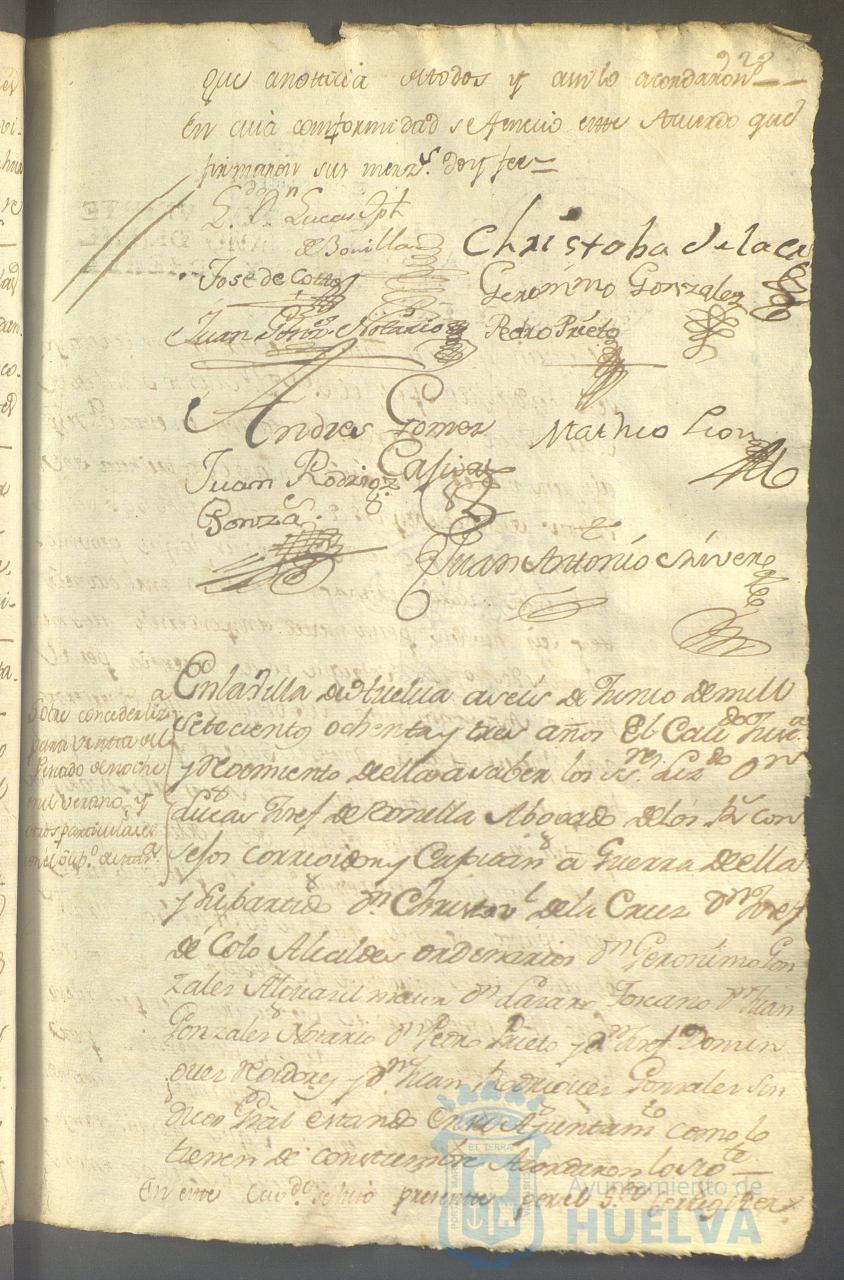 que a noticia de todos y assi lo acordaron
En cuia conformidad se fenecio este Acuerdo que
firmaron sus merz.s doy fee
L.do D.n Lucas Jph
de Bonilla
Christobal de la Cruz
Jose de Coto
Geronimo Gonzalez
Juan Gonz. Notario
Pedro Prieto
Andres Gomez
Matheo Leon
Casival
Juan Rodrig.z
Gonz.s
Juan Antonio
En la Villa de Huelva a seis de Junio de mill
setecientos ochenta y tres años El Cavildo Just.a
y Rexmiento de ella a saver los S.res Liz.do D.n
Lucas Josef de Bonilla Abogado de los R.s Con
sejos Corregidor y Capitan a Guerra de ella
y su partido D.n Christov.l de la Cruz D.n Josef
de Coto Alcaldes ordenarios D.n Geronimo Gon
zales Alguacil maior D.n Lazaro Toscano D.n Juan
Gonzales Notario D.n Pedro Prieto y D.n Josef Domin
gues Rexidores y D.n Juan Rodrigues Gonzales Sin
dico Gral estando en su Ayuntam.to como lo
tienen de constumbre Acordaron lo sig.te
En este Cav.do se hizo presente por el S.or
Sobre conceder
para venta del
Pescado de noche
en el verano, y
otros particulares
922
EL TERRA
Ayuntamiento de
HUELVA